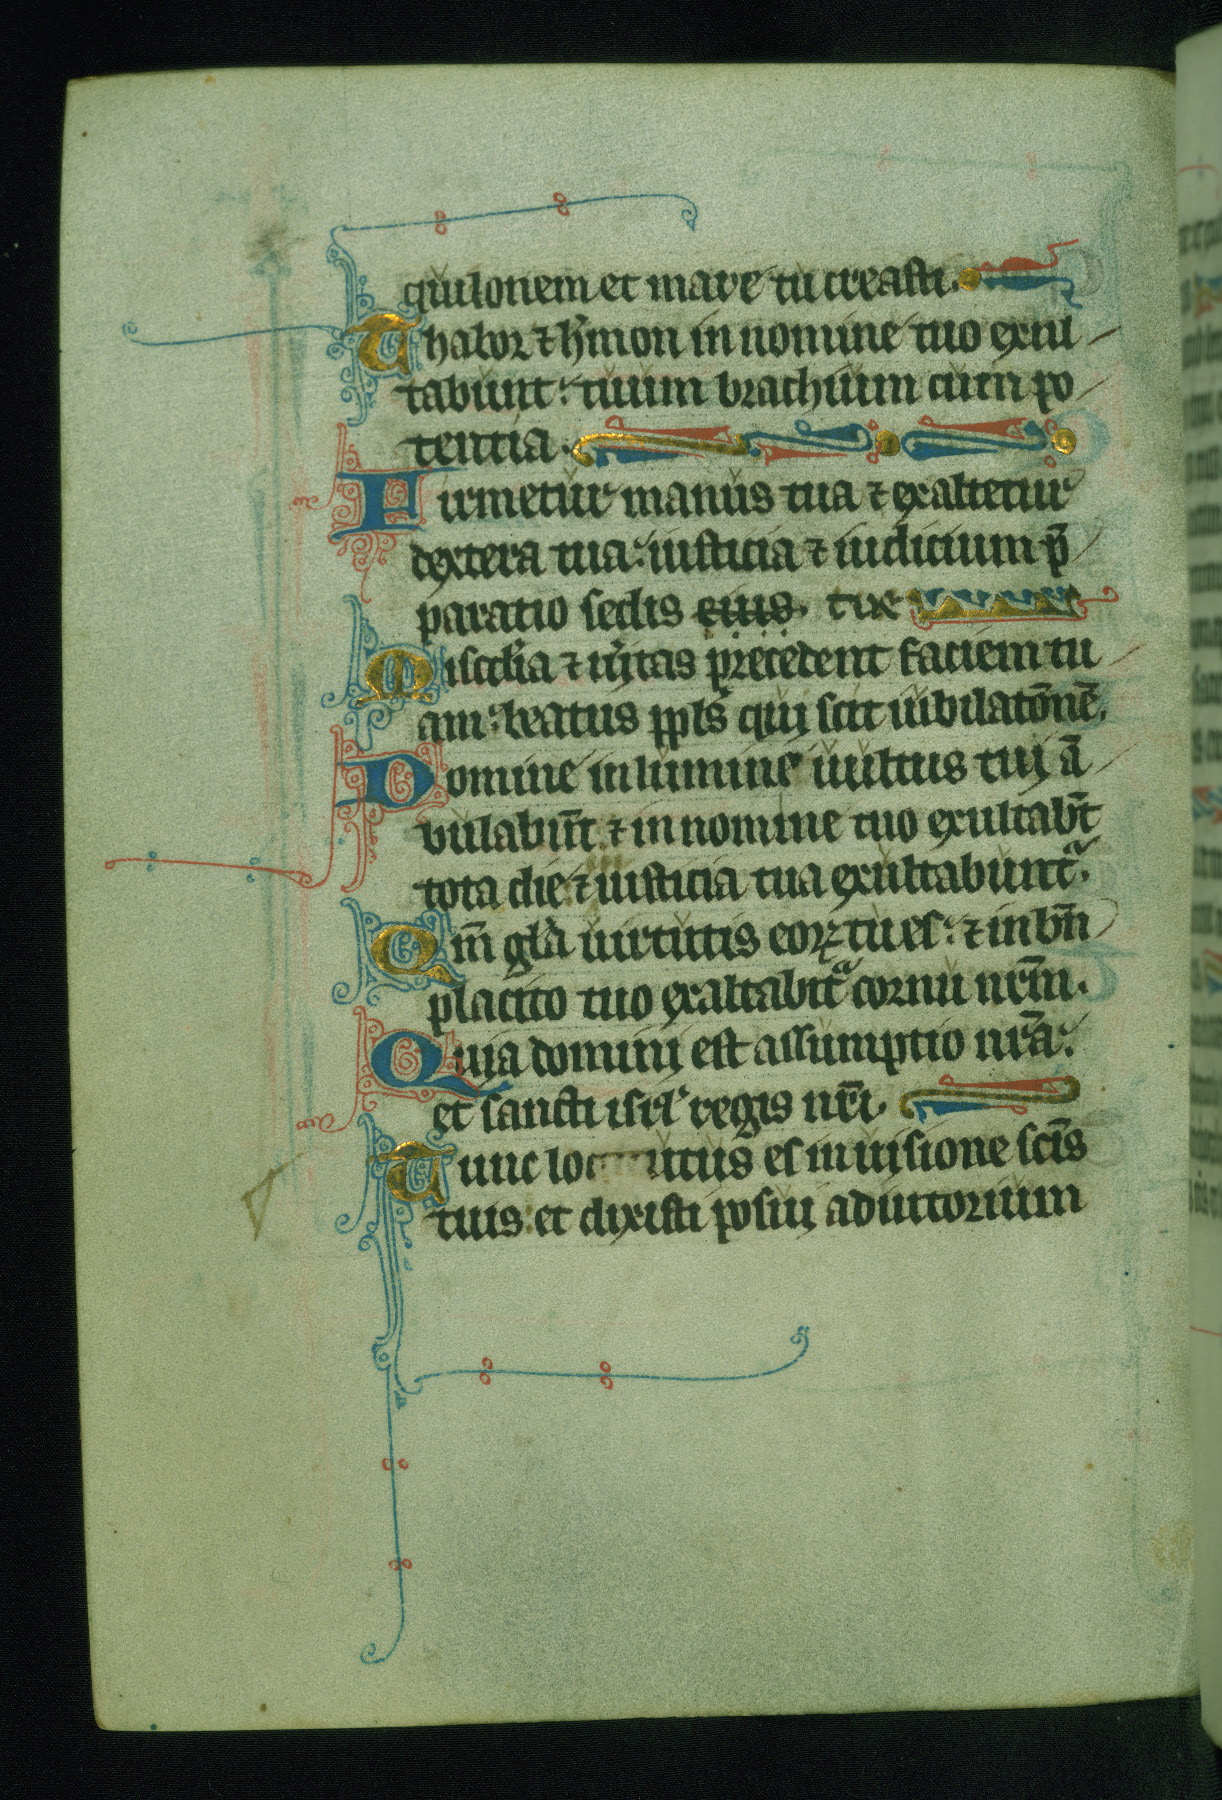 quilonem et mare tu creasti.
Thabor ⁊ h̓mon in nomine tuo exul
tabunt: tuum brachium cum po
tentia.
Firmetur manus tua ⁊ exaltetur
dextera tua: iusticia ⁊ iudicium p̄
paratio sedis eius. tue
Misc̄dia ⁊ ũitas precedent faciem tu
am: beatus ppl̓s qui scit iubilatōnē.
Domine in lumine uultus tui ā
bulabūt ⁊ in nomine tuo exultabt̄
tota die ⁊ in iusticia tua exultabuntᵃ.
Qm̄ glā uirtutis eoꝝ tu es: ⁊ in bn̄
placito tuo exaltabitᵃ cornu nr̄m.
Quia domini est assumptio nr̄a:
et sancti isrl̓ regis nr̄i.
Tunc locutus es in uisione scīs
tuis: et dixisti posui adiutorium